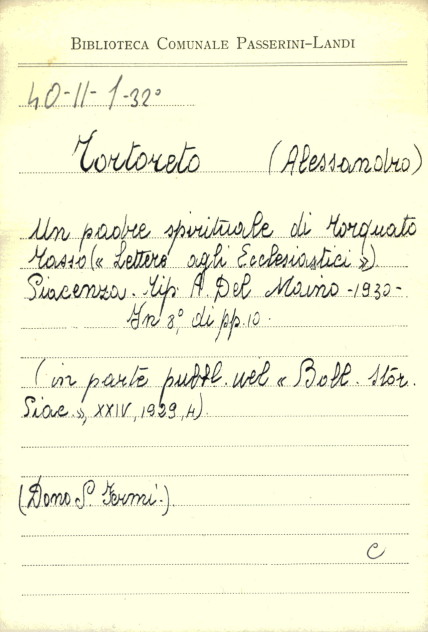 BIBLIOTECA COMUNALE PASSERINI-LANDI
40-II-1-32°
Tortoreto (Alessandro)
Un padre spirituale di Torquato
Tasso (« Lettere agli Ecclesiastici »)
Piacenza. Tip. A. Del Maino - 1930 -
In 8°, di pp. 10.
(in parte pubbl. nel « Boll. Stor.
Piac. », XXIV, 1929, 4).
(Dono S. Fermi.).
C